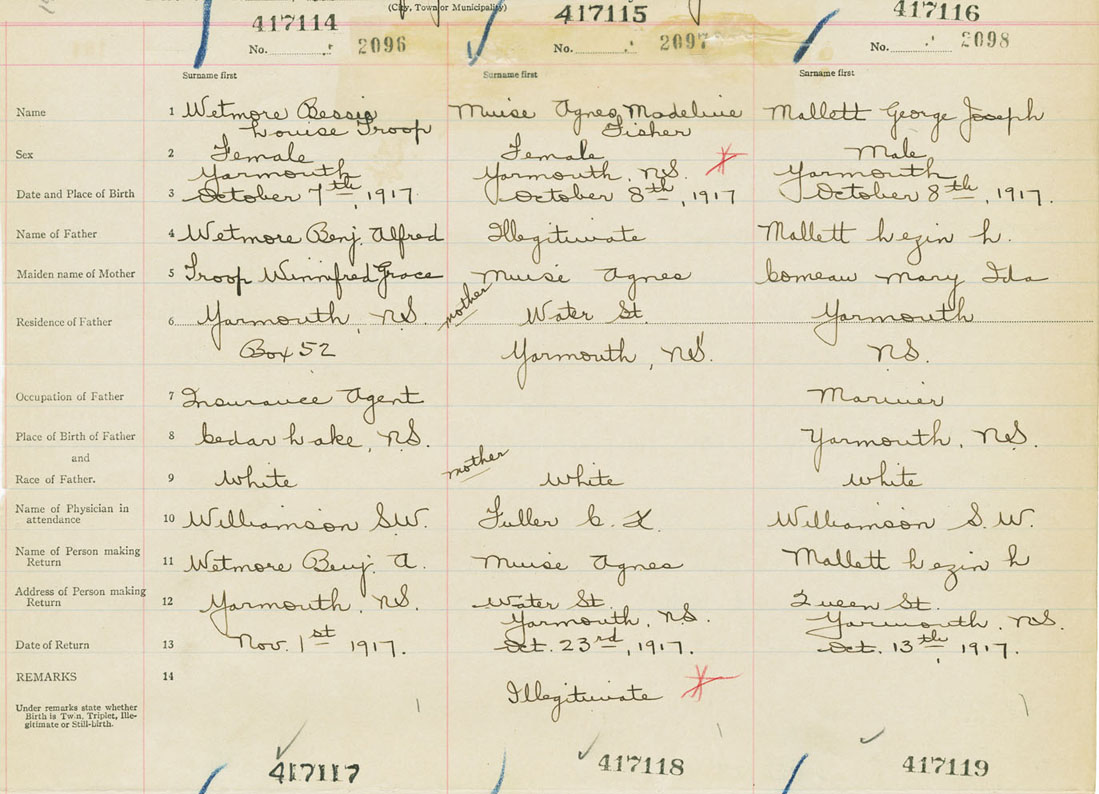 (City, Town or Municipality)
417114 417115 417116
No. 2096 No. 2097 No. 2098
Surname first Surname first Surname first
Name 1 Wetmore Bessie Muise Agnes Madeline Mallett George Joseph
Louise Troop Fisher
Sex 2 Female Female Male
Yarmouth Yarmouth, N.S. Yarmouth
Date and Place of Birth 3 October 7th, 1917. October 8th, 1917 October 8th, 1917.
Name of Father 4 Wetmore Benj. Alfred Illegitimate Mallett Lezin L.
Maiden name of Mother 5 Troop Winnifred Grace Muise Agnes Comeau Mary Ida
Residence of Father 6 Yarmouth, N.S. mother Water St. Yarmouth
Box 52 Yarmouth, N.S. N.S.
Occupation of Father 7 Insurance Agent Mariner
Place of Birth of Father 8 Cedar Lake, N.S. Yarmouth, N.S.
and
Race of Father. 9 White mother White White
Name of Physician in
attendance 10 Williamson S.W. Fuller C. L. Williamson S. W.
Name of Person making
Return 11 Wetmore Benj. A. Muise Agnes Mallett Lezin L
Address of Person making
Return 12 Yarmouth, N.S. Water St. Queen St.
Yarmouth, N.S. Yarmouth, N.S.
Date of Return 13 Nov. 1st 1917. Oct. 23rd, 1917. Oct. 13th, 1917.
REMARKS 14
Illegitimate
Under remarks state whether
Birth is Twin, Triplet, Ille-
gitimate or Still-birth.
417117 417118 417119